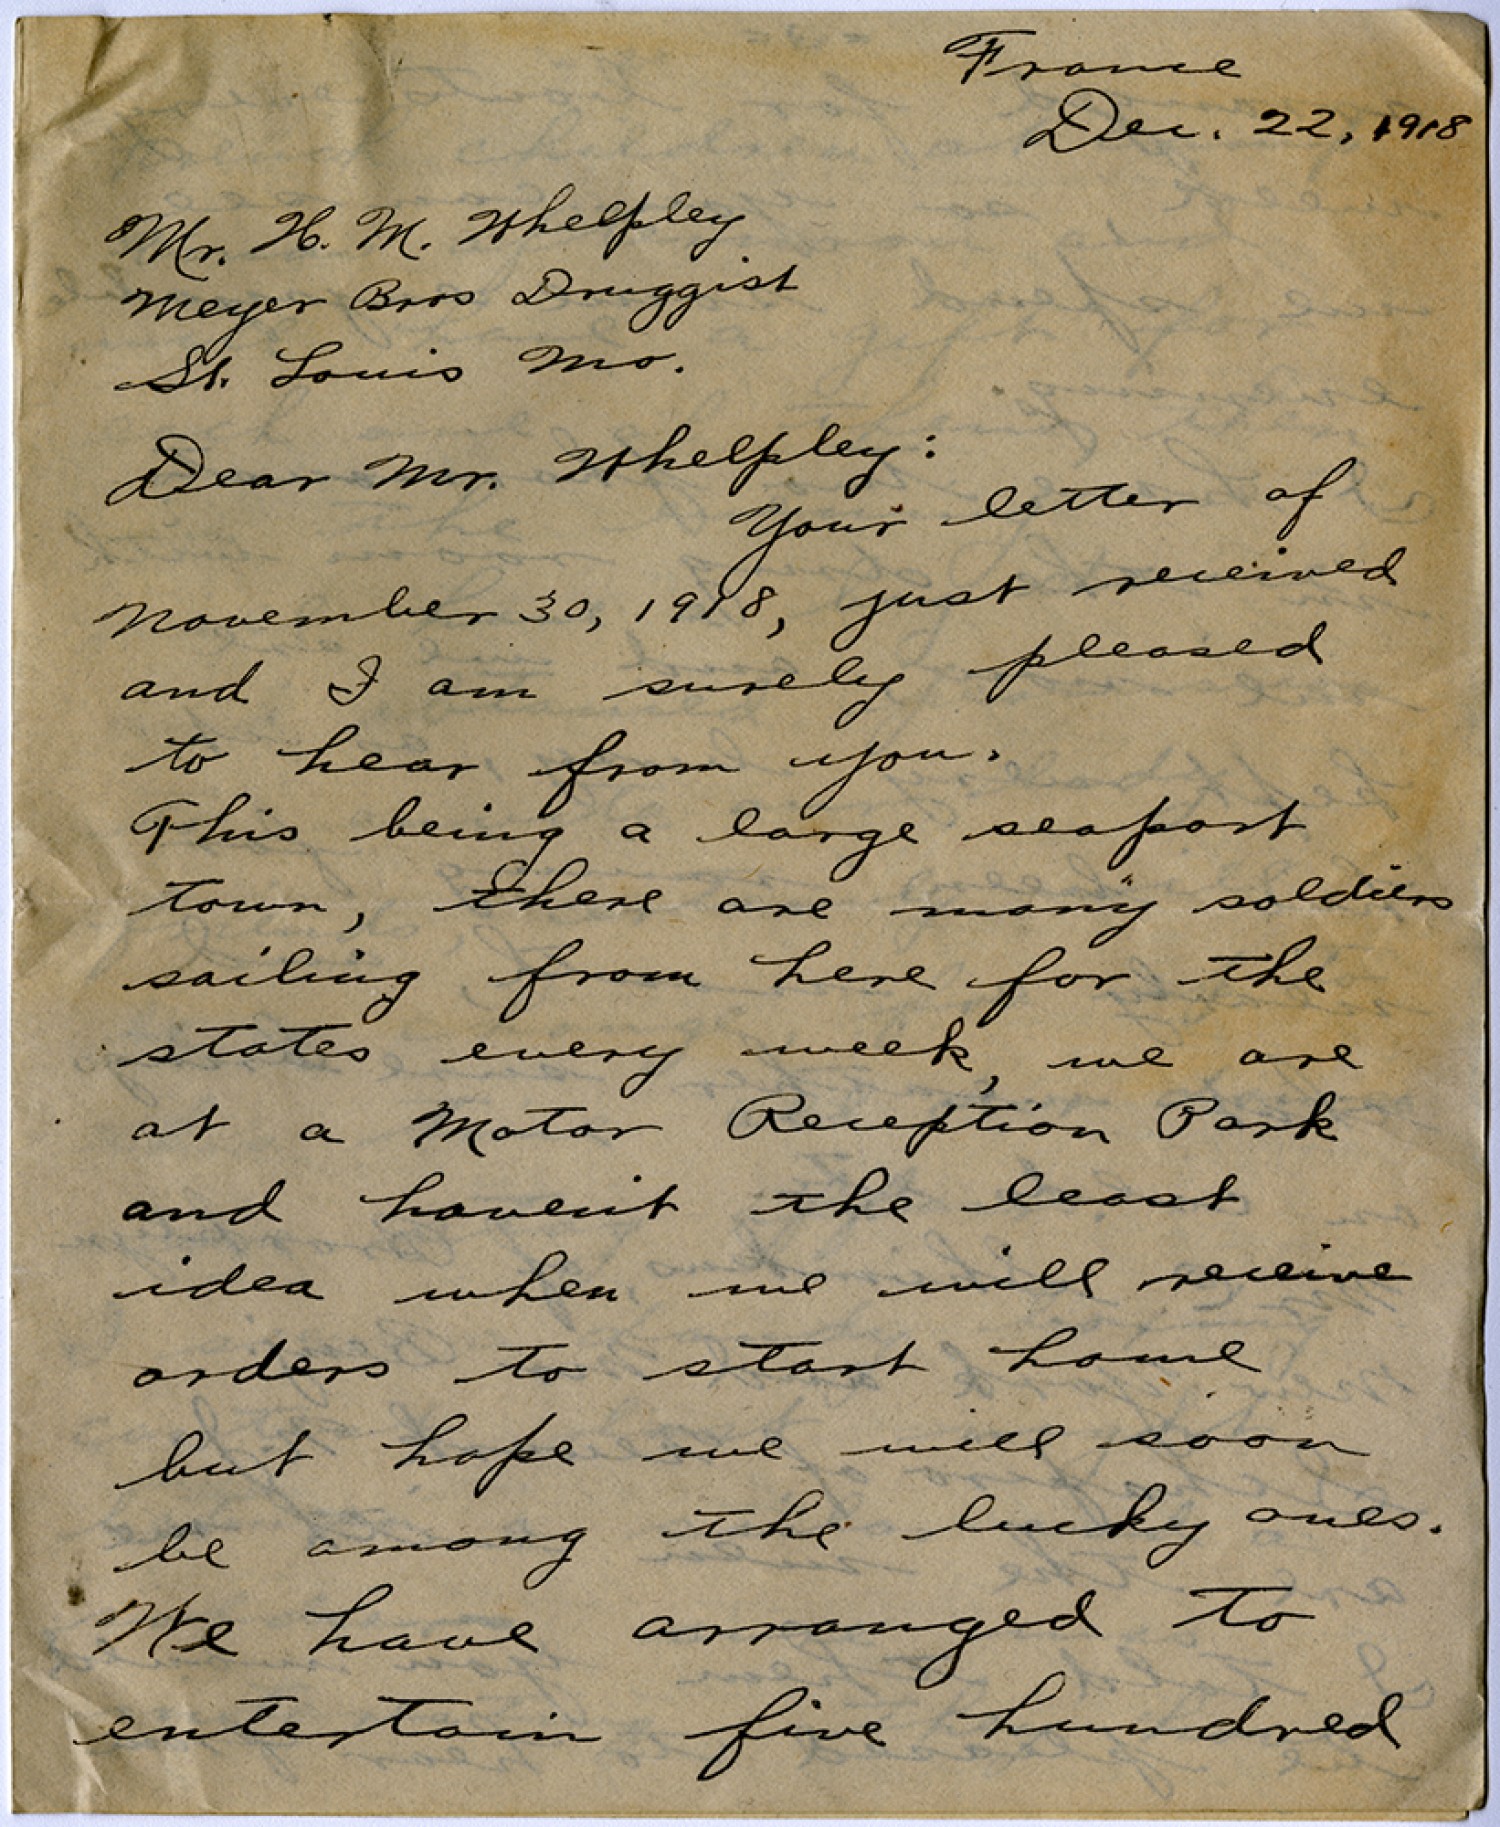 France
Dec. 22, 1918
Mr. H. M. Whelpley
Meyer Bros Druggist
St. Louis Mo.
Dear Mr. Whelpley:
Your letter of
November 30, 1918, just received
and I am surely pleased
to hear from you.
This being a large seaport
town, there are many soldiers
sailing from here for the
states every week, we are
at a Motor Reception Park
and haven't the least
idea when we will receive
orders to start home
but hope we will soon
be among the lucky ones.
We have arranged to
entertain five hundred